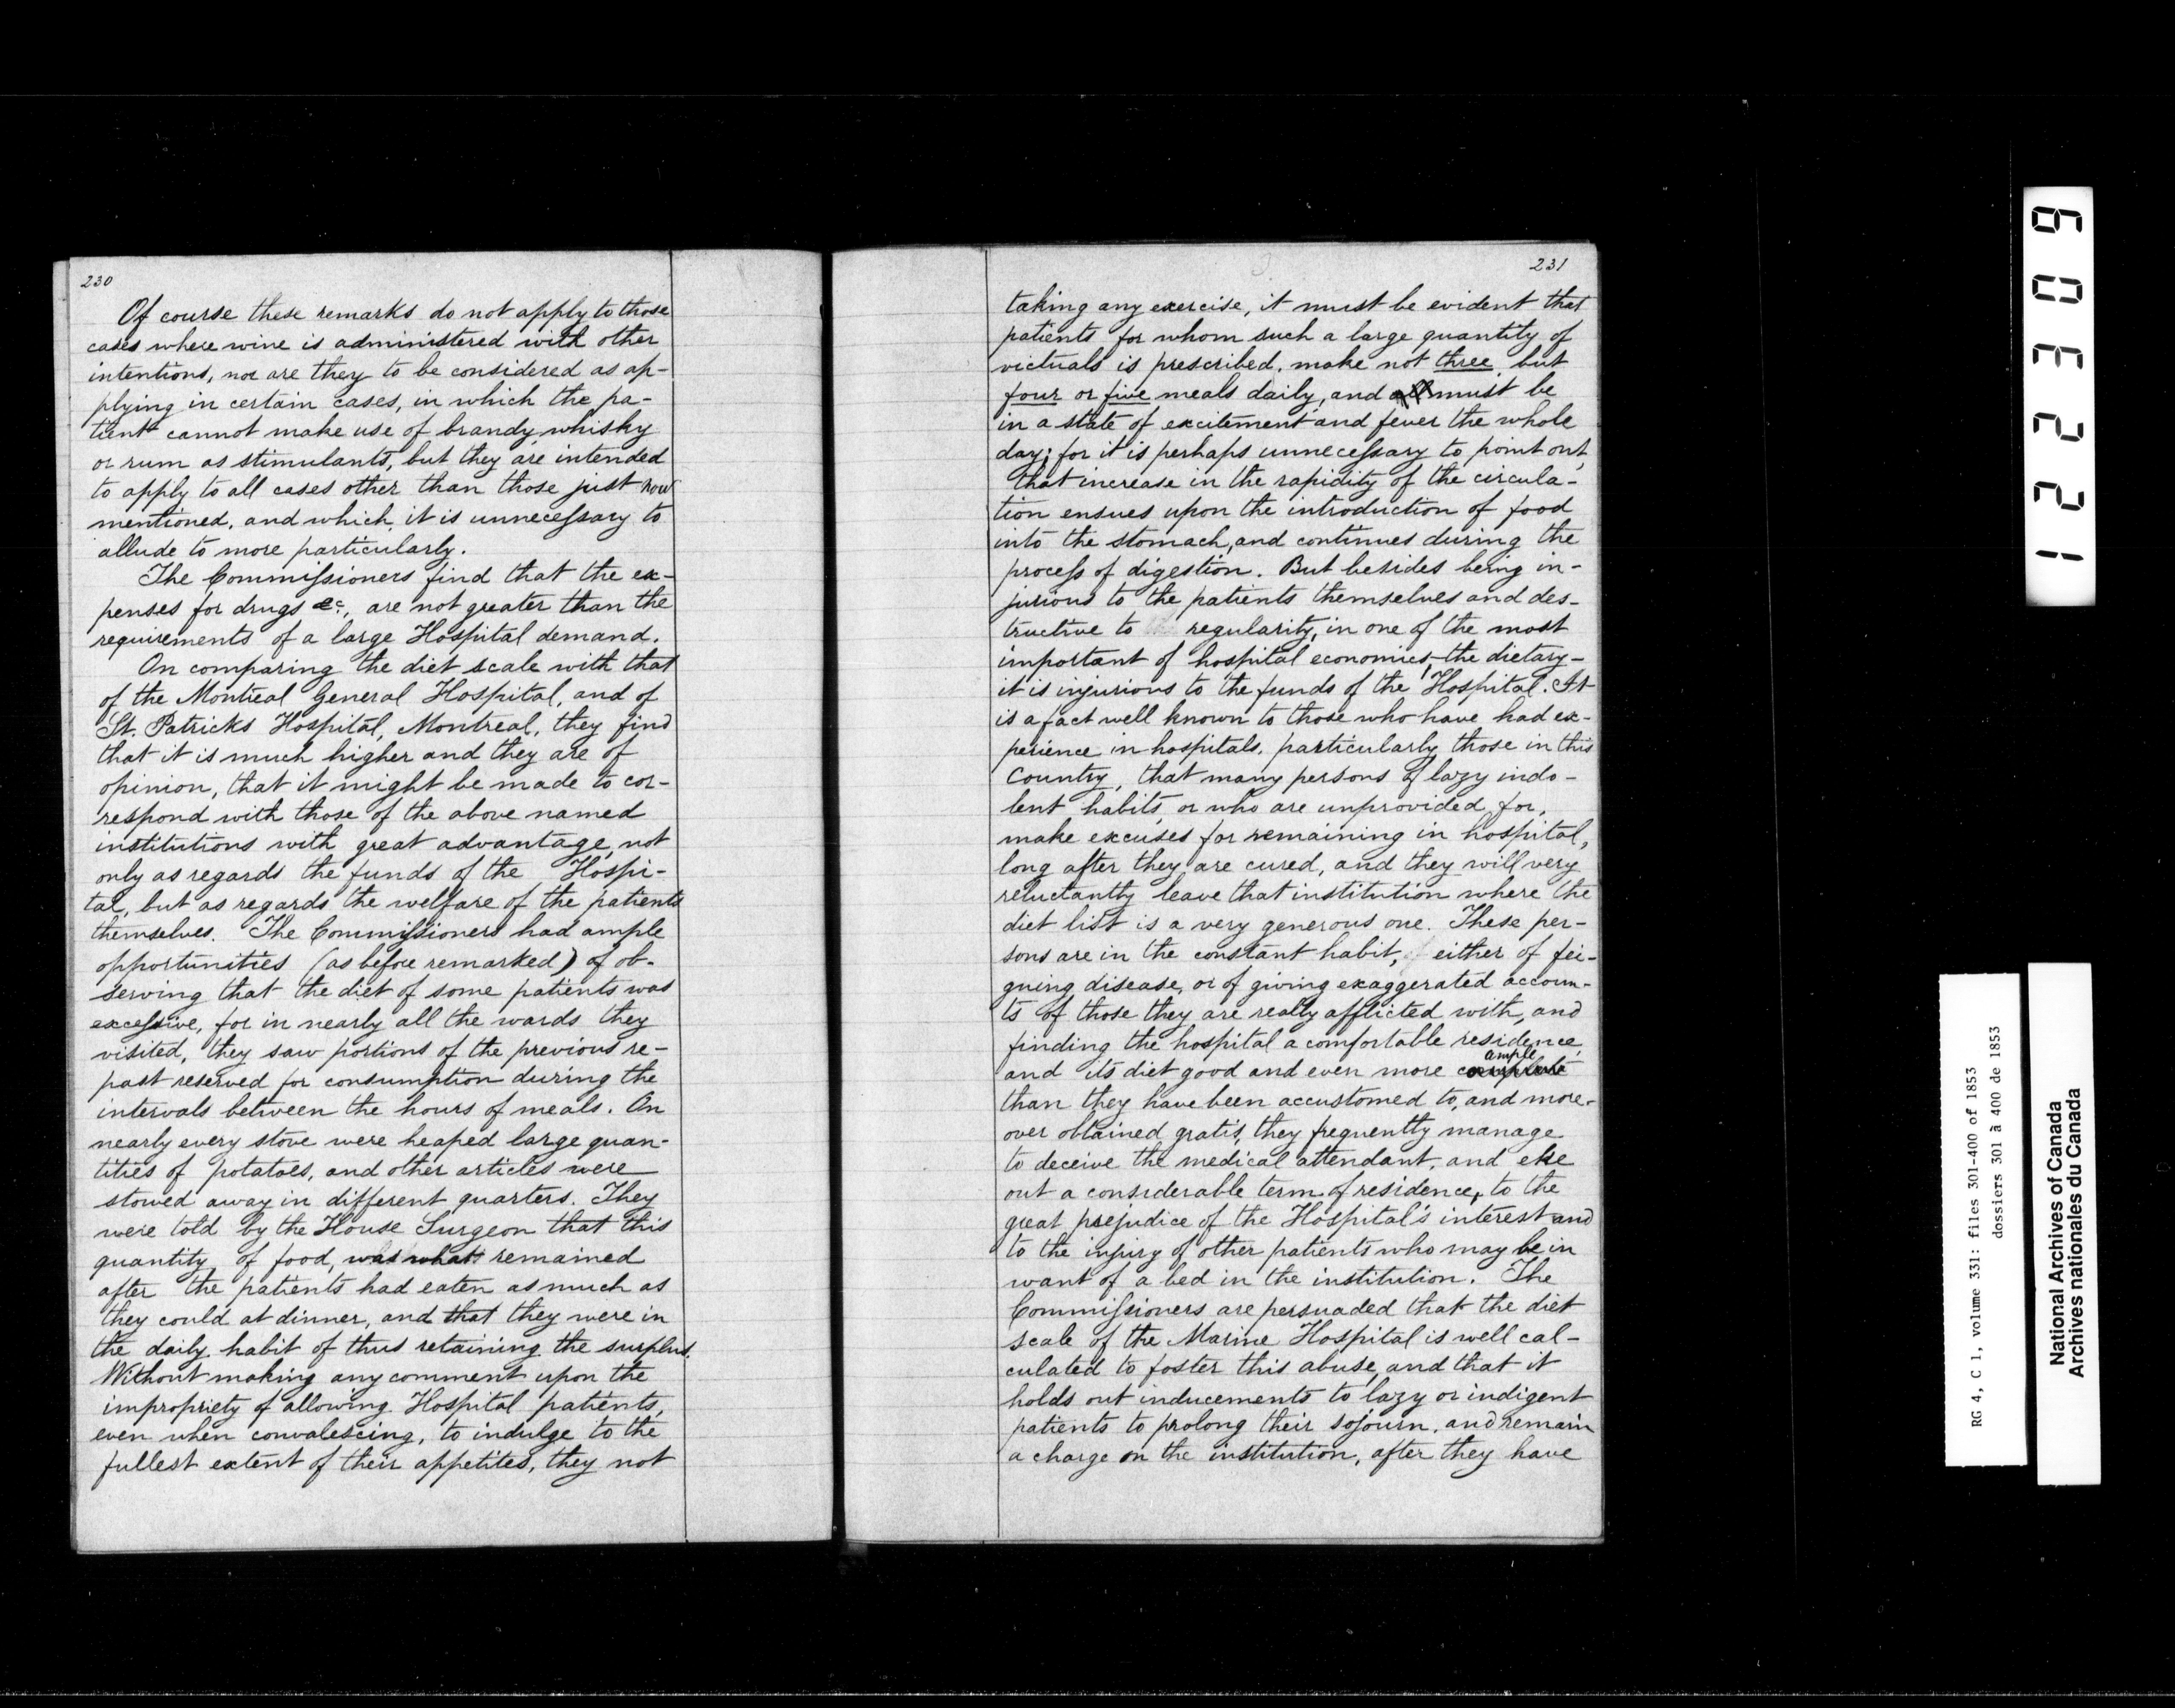 230
Of course these remarks do not apply to those
cases where wine is administered with other
intentions, nor are they to be considered as ap-
plying in certain cases, in which the pa-
tient cannot make use of brandy, whisky
or rum as stimulants, but they are intended
to apply to all cases other than those just now
mentioned, and which, it is unnecessary to
allude to more particularly.
The Commissioners find that the ex-
penses for drugs &c, are not greater than the
requirements of a large Hospital demand.
On comparing the diet scale with that
of the Montreal General Hospital, and of
St. Patricks Hospital, Montreal, they find
that it is much higher and they are of
opinion, that it might be made to cor-
respond with those of the above named
institutions with great advantage, not
only as regards the funds of the Hospi-
tal, but as regards the welfare of the patients
themselves. The Commissioners had ample
opportunities (as before remarked) of ob-
serving that the diet of some patients was
excessive, for in nearly all the wards they
visited, they saw portions of the previous re-
past reserved for consumption during the
intervals between the hours of meals. On
nearly every stove were heaped large quan-
tities of potatoes, and other articles were
stowed away in different quarters. They
were told by the House Surgeon that this
quantity of food, was what remained
after the patients had eaten as much as
they could at dinner, and that they were in
the daily habit of thus retaining the surplus.
Without making any comment upon the
impropriety of allowing Hospital patients,
even when convalescing, to indulge to the
fullest extent of their appetites, they not
231
taking any exercise, it must be evident that
patients for whom such a large quantity of
victuals is prescribed, make not three, but
four or five meals daily, and all must be
in a state of excitement and fever the whole
day; for it is perhaps unnecessary to point out,
that increase in the rapidity of the circula-
tion ensues upon the introduction of food
into the stomach, and continues during the
process of digestion. But besides being in-
jurious to the patients themselves and des-
tructive to the regularity, in one of the most
important of hospital economies, the dietary-
it is injurious to the funds of the Hospital. It
is a fact well known to those who have had ex-
perience in hospitals, particularly those in this
Country, that many persons of lazy indo-
lent habits, or who are unprovided for,
make excuses for remaining in hospital,
long after they are cured, and they will very
reluctantly leave that institution where the
diet list is a very generous one. These per-
sons are in the constant habit, either of fei-
gning disease, or of giving exaggerated accoun-
ts of those they are really afflicted with, and
finding the hospital a comfortable residence,
and its diet good and even more complete ample
than they have been accustomed to, and more-
over obtained gratis, they frequently manage
to deceive the medical attendant, and eke
out a considerable term of residence, to the
great prejudice of the Hospital's interest and
to the injury of other patients who may be in
want of a bed in the institution. The
Commissioners are persuaded that the diet
scale of the Marine Hospital is well cal-
culated to foster this abuse, and that it
holds out inducements to lazy or indigent
patients to prolong their sojourn, and remain
a charge on the institution, after they have
122309
RG 4, C 1, volume 331: files 301-400 of 1853
dossiers 301 à 400 de 1853
National Archives of Canada
Archives nationales du Canada